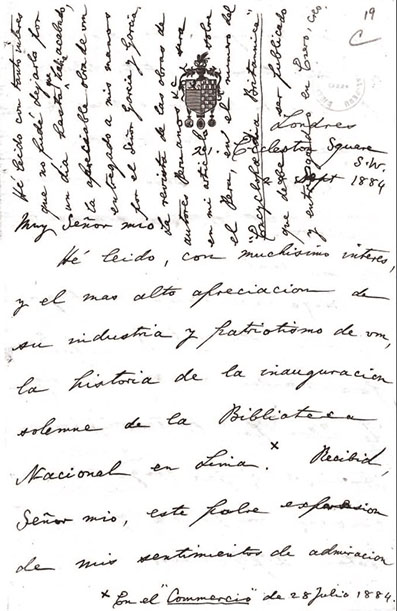 19
C
Londres
21. Eccleston Square
S.W.
Sept 1884
Muy Señor mio.
Hé leido, con muchisimo interes,
y el mas alto apreciacion de
su industria y patriotismo de vm,
la historia de la inauguracion
solemne de la Biblioteca
Nacional en Lima. x Recibid,
Señor mio, este pobre expression
de mis sentimientos de admiracion
x En el "Commercio" de 28 Julio 1884.
Hé leido con tanto interes
que no pudé dejarlo por
un dia hasta que tube acabado,
la apreciable obra de vm
entregado a mis manos
por el Señor Garcia y Garcia.
La revista de las obras de
autores Peruanos sera
en mi articulo sobre
el Peru, en el numero del
"Encyclopædia Britannica"
que debe ser publicado
y entregado en Enero, creo